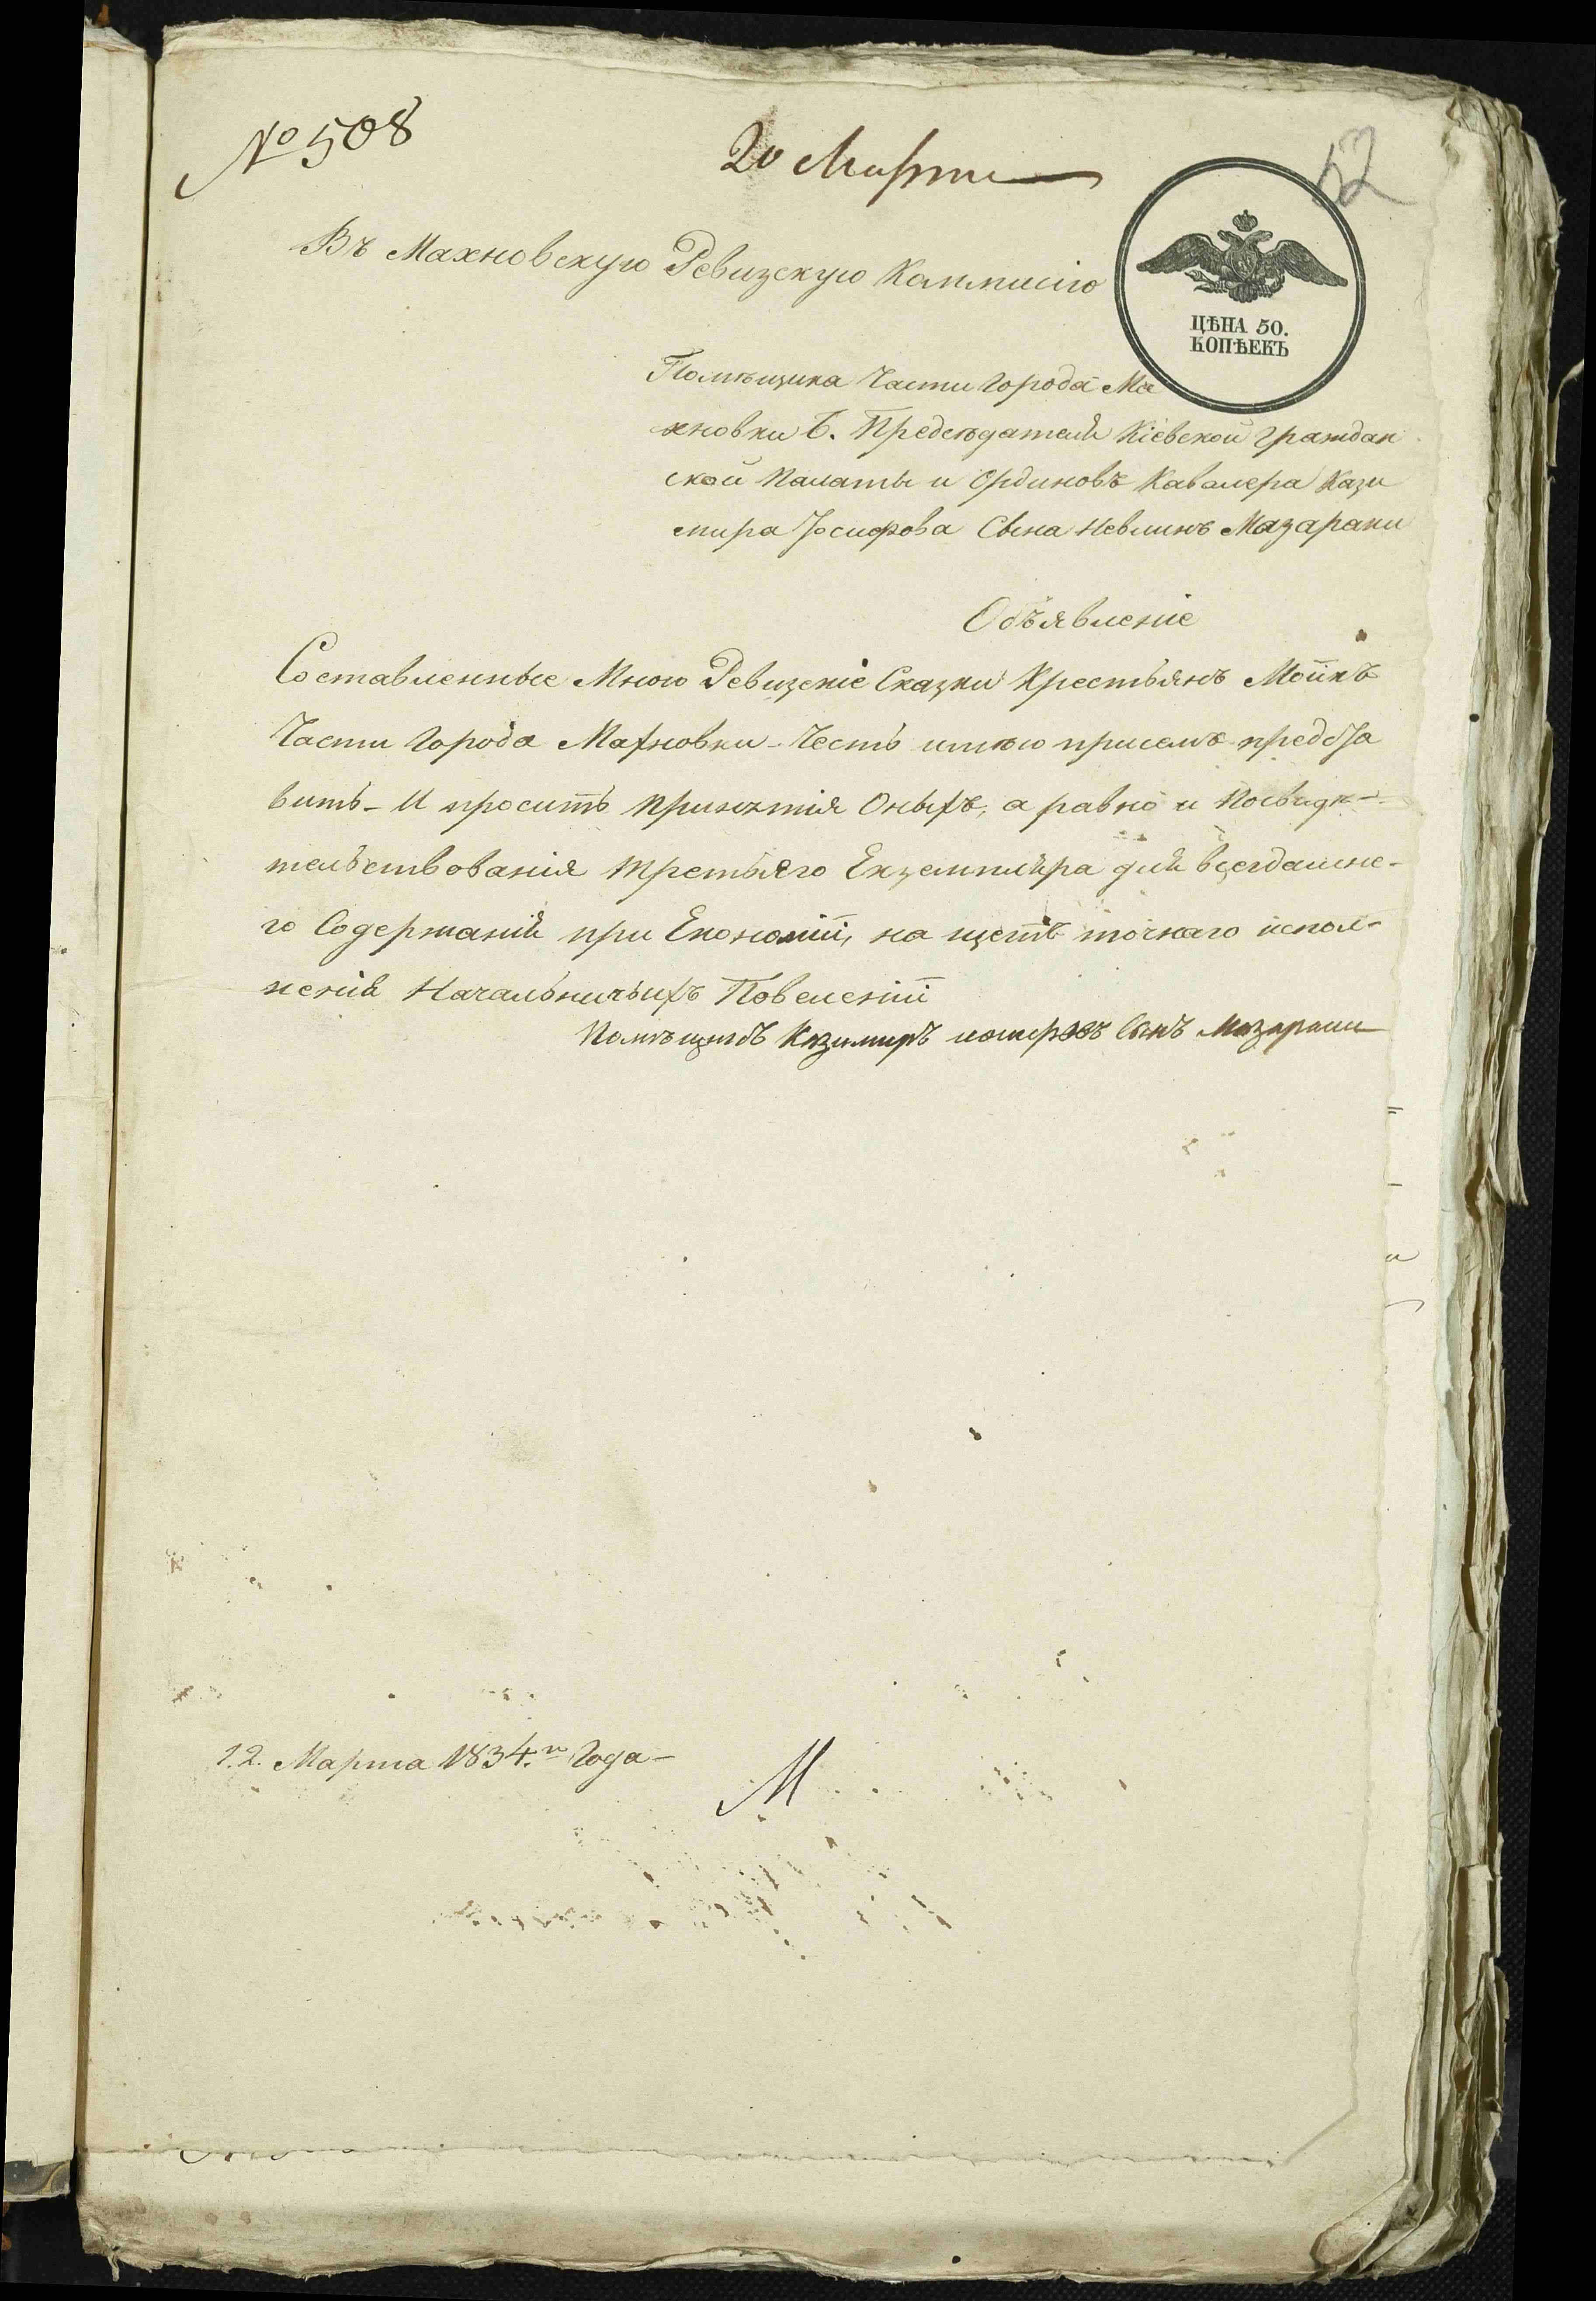 № 508
20 Марта
12
Въ Махновскую Ревизскую Коммисію
ЦѢНА 50.
КОПѢЕКЪ
Помѣщика Части Города Ма
хновки Б. Предсѣдателя Кіевской Граждан
ской Палаты и Ординовъ Кавалера Кази
мира Іосифова Сына Мазараки
Объявленіе
Составленные Мною Ревизскіе Сказки Крестьянъ Моихъ
Части Города Махновки - Честь имѣю присемъ предста
вить - И просить принятія Оныхъ, а равно и Посвидѣ-
тельствованія третьяго Екземпляра для всегдашне-
го Содержанія при Економіи, на щетъ точнаго испол-
ненія Начальничьихъ Повеленій
Помѣщикъ Казимиръ Сынъ Мазараки
12. Марта 1834.го Года -
М